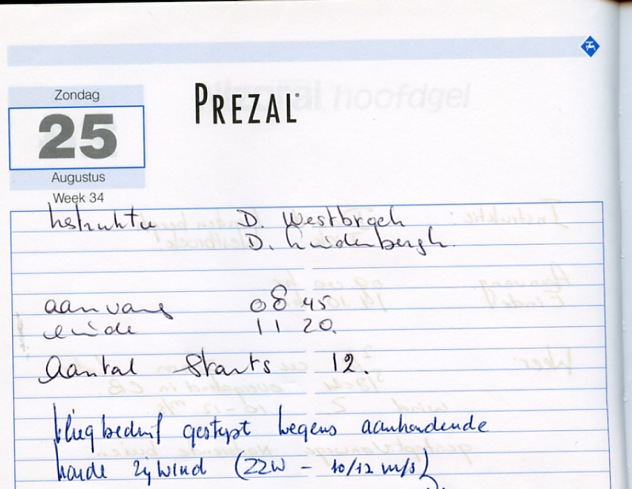 PREZAL
Zondag
25
Augustus
Week 34
Instruktie D. Westbroek
D. Lindenbergh.
aanvang 08 45
einde 11 20.
Aantal Starts 12.
vliegbedrijf gestopt wegens aanhoudende
harde zijwind (ZZW - 10/12 m/s)